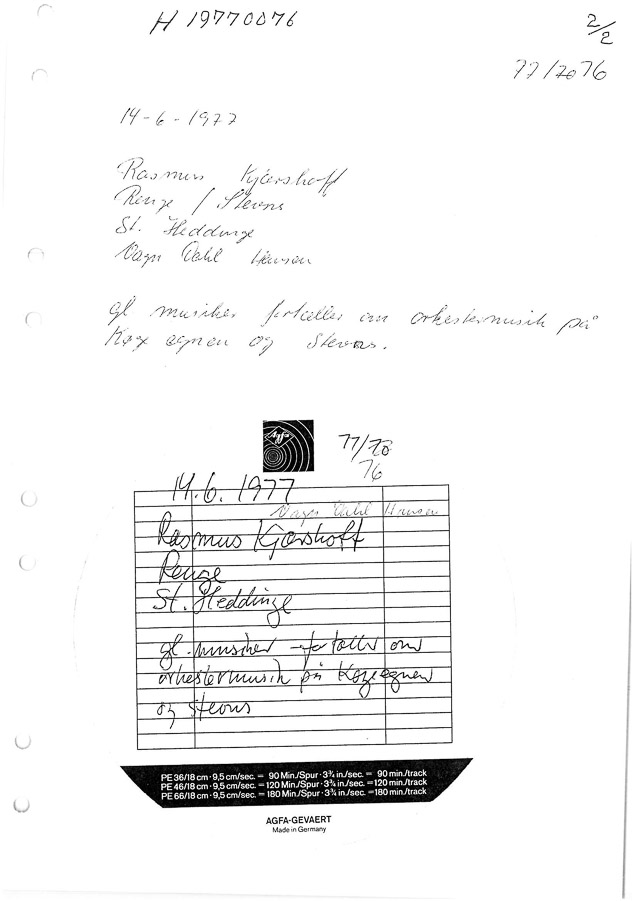 H 19770076
2/2
77/7076
14-6-1977
Rasmus Kjærshoff
Renge / Stevns
St. Heddinge
Vagn Dahl Hansen
gl musiker fortæller om orkestermusik på
Køge egnen og Stevns.
Agfa
77/78
76
14.6.1977
Vagn Dahl Hansen
Rasmus Kjærshoff
Renge
St. Heddinge
gl. musiker fortæller om
orkestermusik på Køgeegnen
og Stevns
PE 36/18 cm · 9,5 cm/sec. = 90 Min./Spur · 3¾ in./sec. = 90 min./track
PE 46/18 cm · 9,5 cm/sec. = 120 Min./Spur · 3¾ in./sec. = 120 min./track
PE 66/18 cm · 9,5 cm/sec. = 180 Min./Spur · 3¾ in./sec. = 180 min./track
AGFA-GEVAERT
Made in Germany